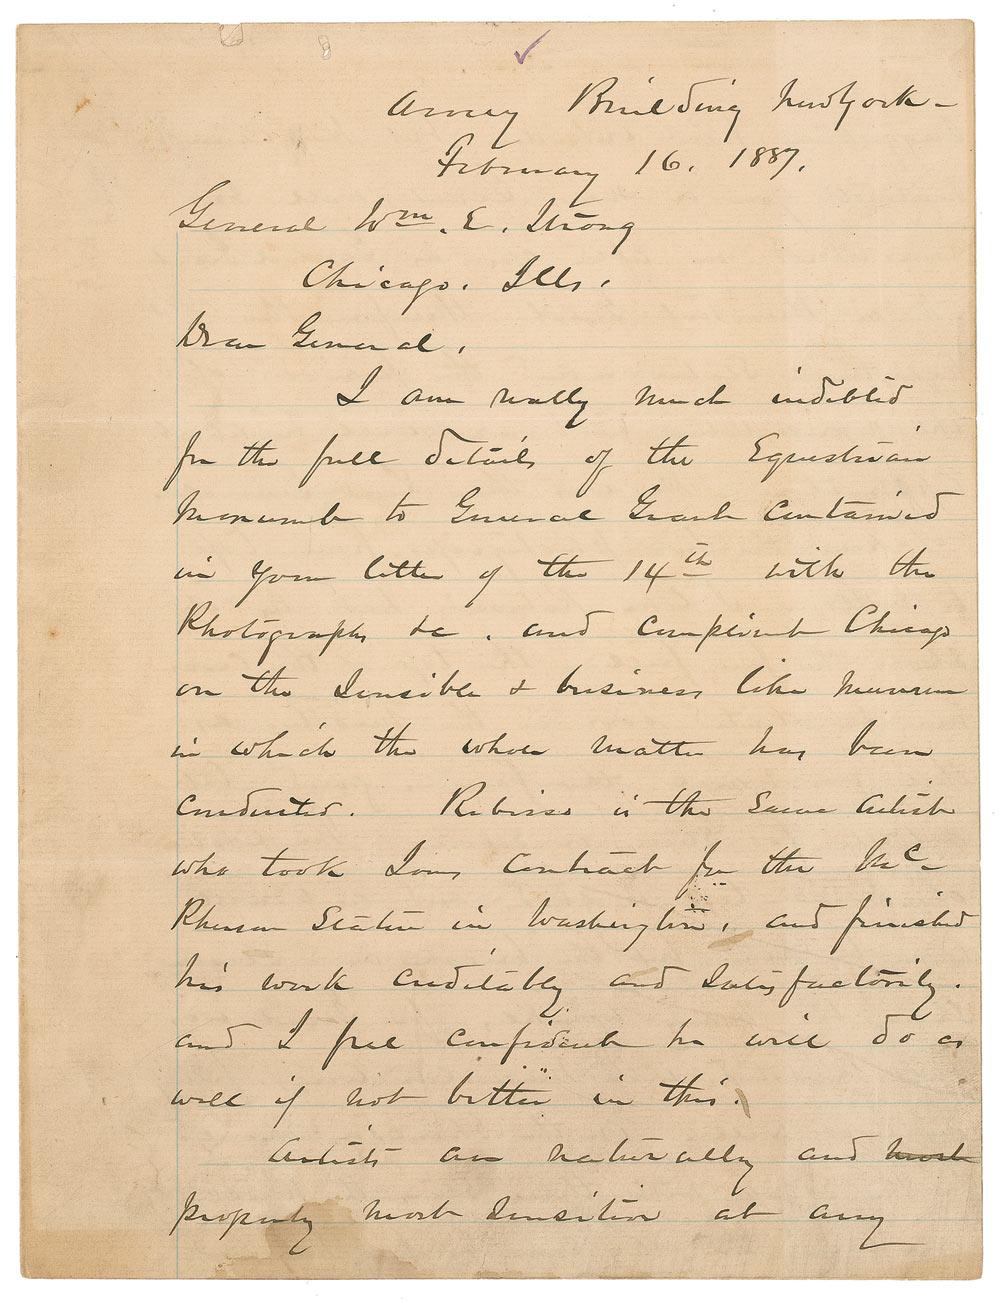 Army Building New York -
February 16. 1887.
General Wm. E. Strong
Chicago. Ills.
Dear General,
I am really much indebted
for the full details of the Equestrian
Monument to General Grant contained
in your letter of the 14th with the
Photographs &c. and compliment Chicago
on the sensible & business like manner
in which the whole matter has been
conducted. Rebisso is the same Artist
who took Jones contract for the Mc-
Pherson Statue in Washington, and finished
his work creditably and satisfactorily.
and I feel confident he will do as
well if not better in this.
Artists are naturally and most
properly most sensitive at any